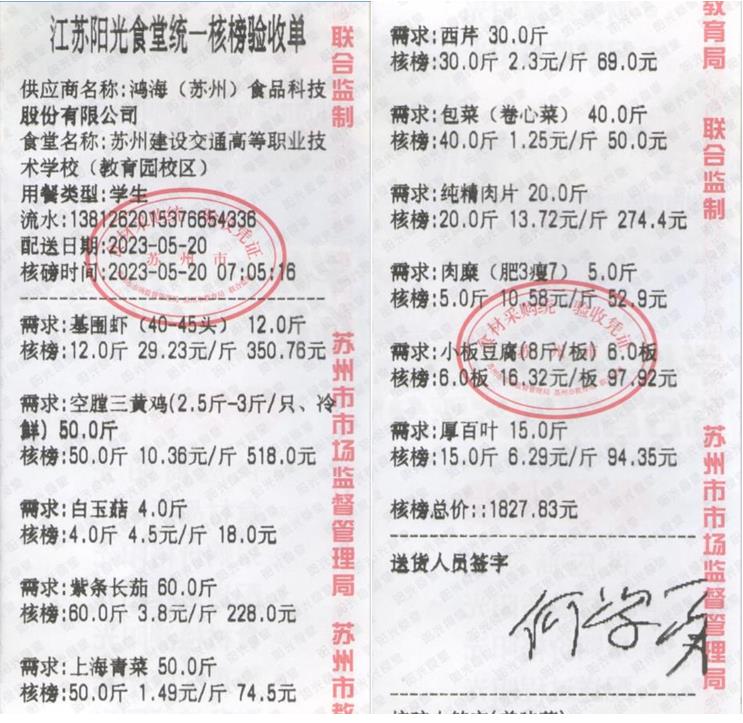 江苏阳光食堂统一核榜验收单
供应商名称:鸿海（苏州）食品科技
股份有限公司
食堂名称:苏州建设交通高等职业技
术学校（教育园校区）
用餐类型:学生
流水:1381262015376854336
配送日期:2023-05-20
核磅时间:2023-05-20 07:05:16
需求:基围虾（40-45头） 12.0斤
核榜:12.0斤 29.23元/斤 350.76元
需求:空膛三黄鸡(2.5斤-3斤/只、冷
鲜) 50.0斤
核榜:50.0斤 10.36元/斤 518.0元
需求:白玉菇 4.0斤
核榜:4.0斤 4.5元/斤 18.0元
需求:紫条长茄 60.0斤
核榜:60.0斤 3.8元/斤 228.0元
需求:上海青菜 50.0斤
核榜:50.0斤 1.49元/斤 74.5元
联合监制
苏州市市场监督管理局
苏州市教
需求:西芹 30.0斤
核榜:30.0斤 2.3元/斤 69.0元
需求:包菜（卷心菜） 40.0斤
核榜:40.0斤 1.25元/斤 50.0元
需求:纯精肉片 20.0斤
核榜:20.0斤 13.72元/斤 274.4元
需求:肉糜（肥3瘦7） 5.0斤
核榜:5.0斤 10.58元/斤 52.9元
需求:小板豆腐(8斤/板) 6.0板
核榜:6.0板 16.32元/板 97.92元
需求:厚百叶 15.0斤
核榜:15.0斤 6.29元/斤 94.35元
核榜总价::1827.83元
送货人员签字
教育局
联合监制
苏州市市场监督管理局
食材采购统一验收凭证
苏州市